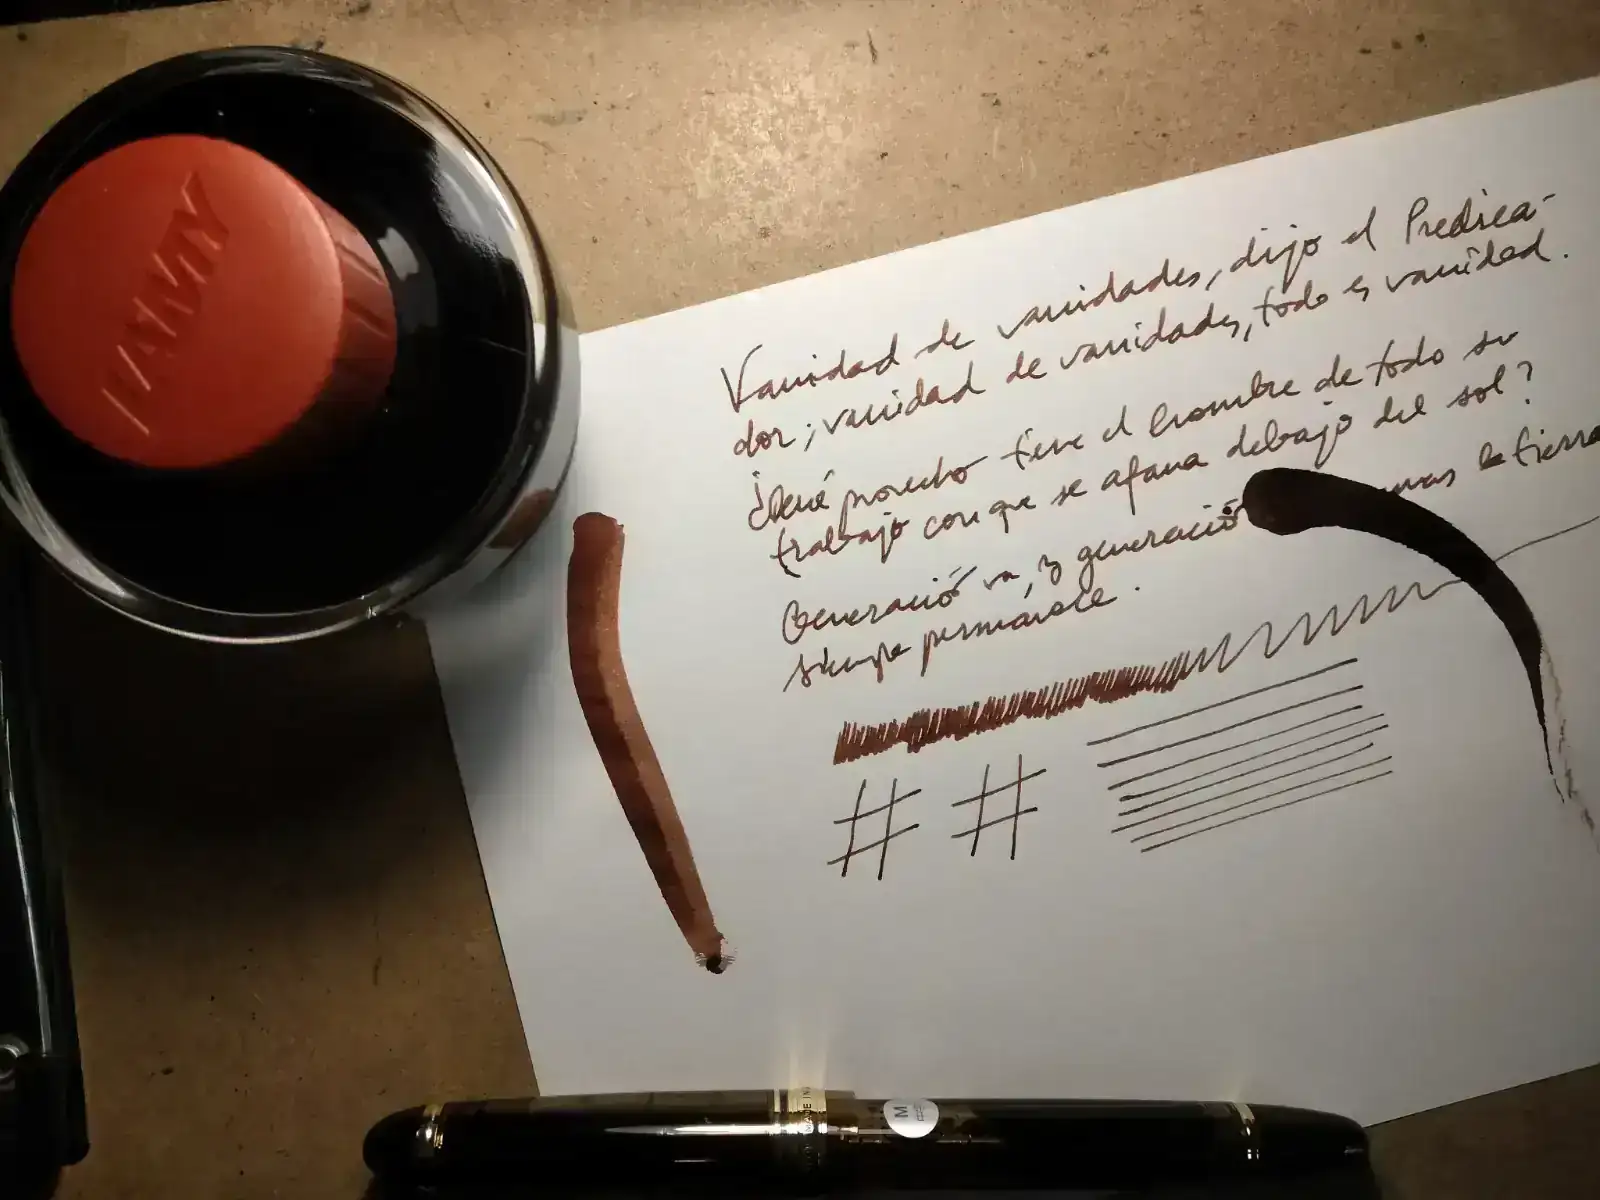 Vanidad de vanidades, dijo el Predica-
dor; vanidad de vanidades, todo es vanidad.
¿Qué provecho tiene el hombre de todo su
trabajo con que se afana debajo del sol?
Generación va, y generación mas la tierra
siempre permanece.
# #
MADE IN
M